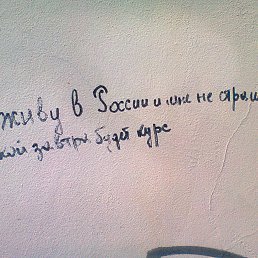 живу в России и мне не страшн
кой завтра будет курс